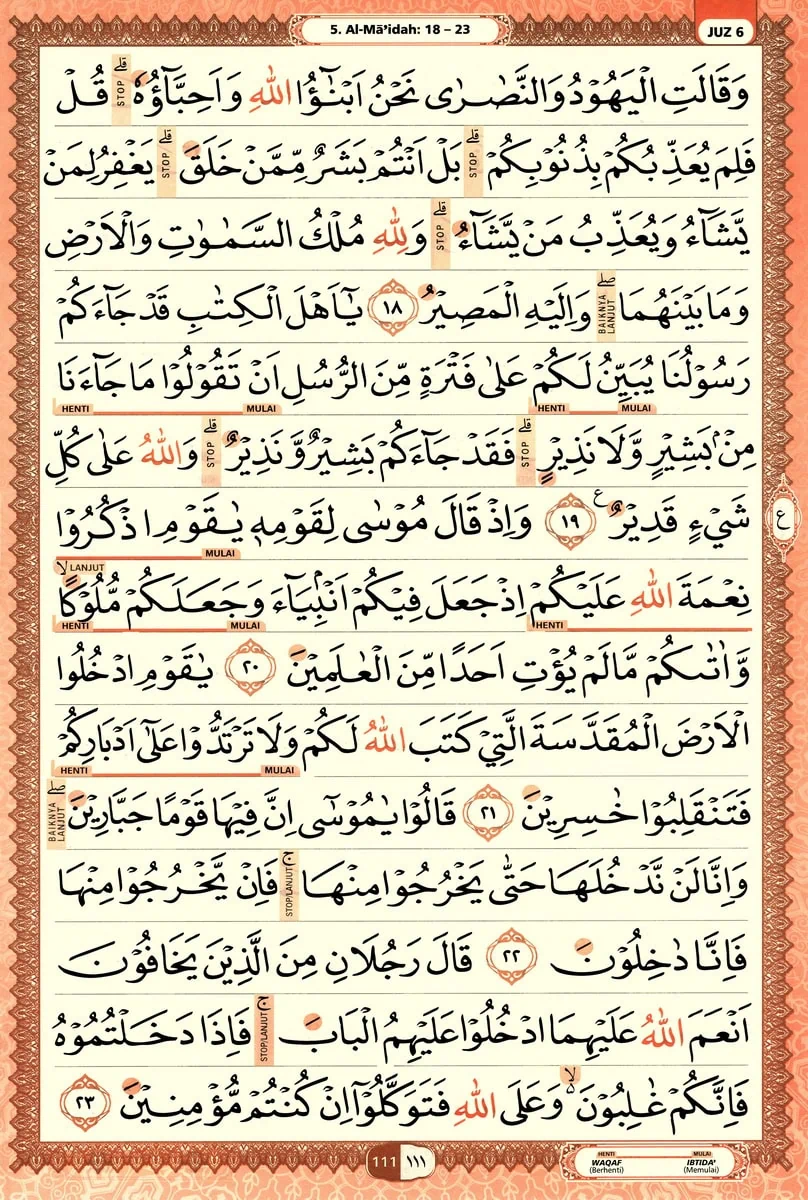 5. Al-Mā’idah: 18 – 23
JUZ 6
وَقَالَتِ الْيَهُوْدُ وَالنَّصٰرٰى نَحْنُ اَبْنٰۤؤُا اللّٰهِ وَاَحِبَّاۤؤُهٗ ۗ قُلْ
STOP
فَلِمَ يُعَذِّبُكُمْ بِذُنُوْبِكُمْ ۗ بَلْ اَنْتُمْ بَشَرٌ مِّمَّنْ خَلَقَۗ يَغْفِرُ لِمَنْ
STOP STOP
يَّشَاۤءُ وَيُعَذِّبُ مَنْ يَّشَاۤءُۗ وَلِلّٰهِ مُلْكُ السَّمٰوٰتِ وَالْاَرْضِ
STOP
وَمَا بَيْنَهُمَا ۖ وَاِلَيْهِ الْمَصِيْرُ ١٨ يٰٓاَهْلَ الْكِتٰبِ قَدْ جَاۤءَكُمْ
BAIKNYA LANJUT
رَسُوْلُنَا يُبَيِّنُ لَكُمْ عَلٰى فَتْرَةٍ مِّنَ الرُّسُلِ اَنْ تَقُوْلُوْا مَا جَاۤءَنَا
HENTI MULAI HENTI MULAI
مِنْۢ بَشِيْرٍ وَّلَا نَذِيْرٍۗ فَقَدْ جَاۤءَكُمْ بَشِيْرٌ وَّنَذِيْرٌ ۗ وَاللّٰهُ عَلٰى كُلِّ
STOP STOP
شَيْءٍ قَدِيْرٌ ࣖ ١٩ وَاِذْ قَالَ مُوْسٰى لِقَوْمِهٖ يٰقَوْمِ اذْكُرُوْا
ع
MULAI
نِعْمَةَ اللّٰهِ عَلَيْكُمْ اِذْ جَعَلَ فِيْكُمْ اَنْۢبِيَاۤءَ وَجَعَلَكُمْ مُّلُوْكًاۙ
LANJUT
HENTI MULAI HENTI
وَّاٰتٰىكُمْ مَّا لَمْ يُؤْتِ اَحَدًا مِّنَ الْعٰلَمِيْنَ ٢٠ يٰقَوْمِ ادْخُلُوا
الْاَرْضَ الْمُقَدَّسَةَ الَّتِيْ كَتَبَ اللّٰهُ لَكُمْ وَلَا تَرْتَدُّوْا عَلٰٓى اَدْبَارِكُمْ
HENTI MULAI
فَتَنْقَلِبُوْا خٰسِرِيْنَ ٢١ قَالُوْا يٰمُوْسٰٓى اِنَّ فِيْهَا قَوْمًا جَبَّارِيْنَۖ
BAIKNYA LANJUT
وَاِنَّا لَنْ نَّدْخُلَهَا حَتّٰى يَخْرُجُوْا مِنْهَاۚ فَاِنْ يَّخْرُجُوْا مِنْهَا
STOP/LANJUT
فَاِنَّا دٰخِلُوْنَ ٢٢ قَالَ رَجُلَانِ مِنَ الَّذِيْنَ يَخَافُوْنَ
اَنْعَمَ اللّٰهُ عَلَيْهِمَا ادْخُلُوْا عَلَيْهِمُ الْبَابَۚ فَاِذَا دَخَلْتُمُوْهُ
STOP/LANJUT
فَاِنَّكُمْ غٰلِبُوْنَ ەۙ وَعَلَى اللّٰهِ فَتَوَكَّلُوْٓا اِنْ كُنْتُمْ مُّؤْمِنِيْنَ ٢٣
111 ١١١
HENTI MULAI
WAQAF IBTIDA’
(Berhenti) (Memulai)